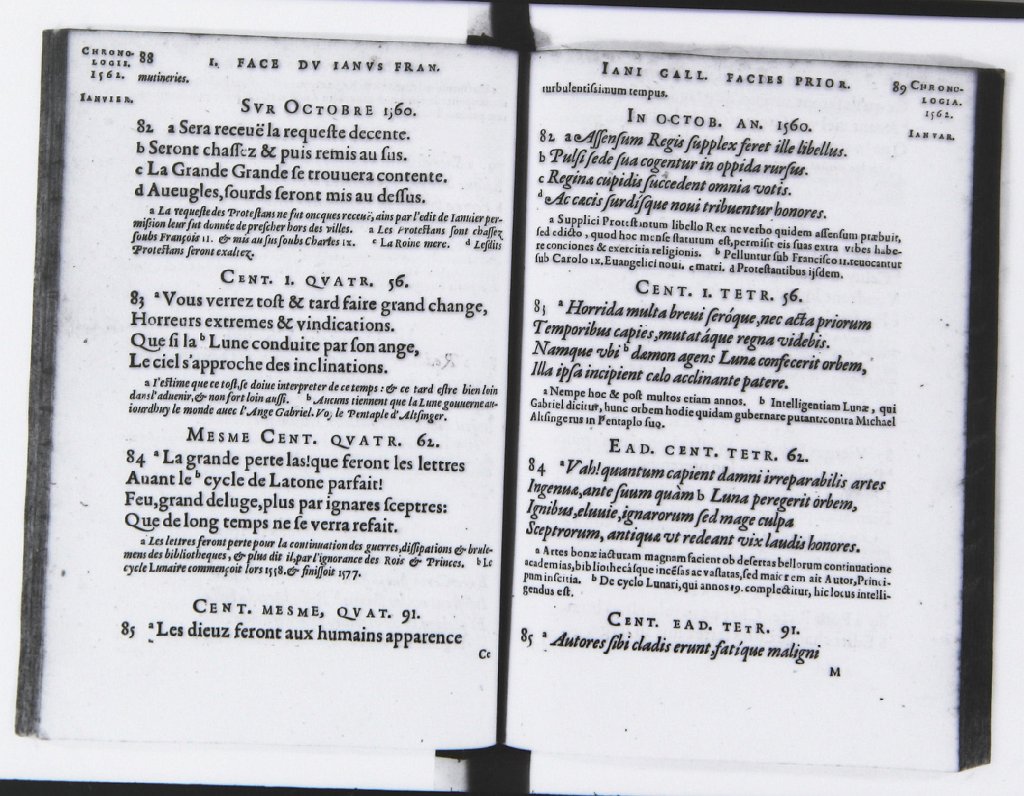 CHRONO-
LOGIE.
1562.
IANVIER.
88
I. FACE DV IANVS FRAN.
mutineries.
SVR OCTOBRE 1560.
82 a Sera receuë la requeste decente.
b Seront chassez & puis remis au sus.
c La Grande Grande se trouuera contente.
d Aueugles, sourds seront mis au dessus.
a La requeste des Protestans ne fut oncques receuë, ains par l'edit de Ianuier per-
mission leur fut donnée de prescher hors des villes. a Les Protestans sont chassez
soubs François 11. & mis au sus soubs Charles ix. c La Roine mere. d Lesdits
Protestans seront exaltez.
CENT. I. QVATR. 56.
83 a Vous verrez tost & tard faire grand change,
Horreurs extremes & vindications.
Que si la b Lune conduite par son ange,
Le ciel s'approche des inclinations.
a I'estime que ce tost, se doiue interpreter de ce temps: & ce tard estre bien loin
dans l'aduenir, & non fort loin aussi. b Aucuns tiennent que la Lune gouuerne au-
iourdhuy le monde auec l'Ange Gabriel. Voy le Pentaple d'Alsinger.
MESME CENT. QVATR. 62.
84 a La grande perte las! que feront les lettres
Auant le b cycle de Latone parfait!
Feu, grand deluge, plus par ignares sceptres:
Que de long temps ne se verra refait.
a Les lettres feront perte pour la continuation des guerres, dissipations & brule-
mens des bibliotheques, & plus dit il, par l'ignorance des Rois & Princes. b Le
cycle Lunaire commençoit lors 1558. & finissoit 1577.
CENT. MESME, QVAT. 91.
85 a Les dieuz feront aux humains apparence
Ce
IANI GALL. FACIES PRIOR.
89
CHRONO-
LOGIA.
1562.
IANVAR.
turbulentissimum tempus.
IN OCTOB. AN. 1560.
82 a Assensum Regis supplex feret ille libellus.
b Pulsi sede sua cogentur in oppida rursus.
c Regina cupidis succedent omnia votis.
d Ac cæcis surdisque noui tribuentur honores.
a Supplici Protestantum libello Rex ne verbo quidem assensum præbuit,
sed edicto, quod hoc mense statutum est, permisit eis suas extra vrbes habe-
re conciones & exercitia religionis. b Pelluntur sub Francisco 11. reuocantur
sub Carolo ix, Euangelici noui. c matri. d Protestantibus ijsdem.
CENT. I. TETR. 56.
83 a Horrida multa breui seróque, nec acta priorum
Temporibus capies, mutatáque regna videbis.
Namque vbi b dæmon agens Lunæ confecerit orbem,
Illa ipsa incipient cælo acclinante patere.
a Nempe hoc & post multos etiam annos. b Intelligentiam Lunæ, qui
Gabriel dicitur, hunc orbem hodie quidam gubernare putant: contra Michael
Altsingerus in Pentaplo suo.
EAD. CENT. TETR. 62.
84 a Vah! quantum capient damni irreparabilis artes
Ingenuæ, ante suum quàm b Luna peregerit orbem,
Ignibus, eluuie, ignarorum sed mage culpa
Sceptrorum, antiqua vt redeant vix laudis honores.
a Artes bonæ iacturam magnam facient ob desertas bellorum continuatione
academias, bibliothecásque incēsas ac vastatas, sed maiorem ait Autor, Princi-
pum inscitia. b De cyclo Lunari, qui annos 19. complectitur, hic locus intelli-
gendus est.
CENT. EAD. TETR. 91.
85 a Autores sibi cladis erunt, fatíque maligni
M